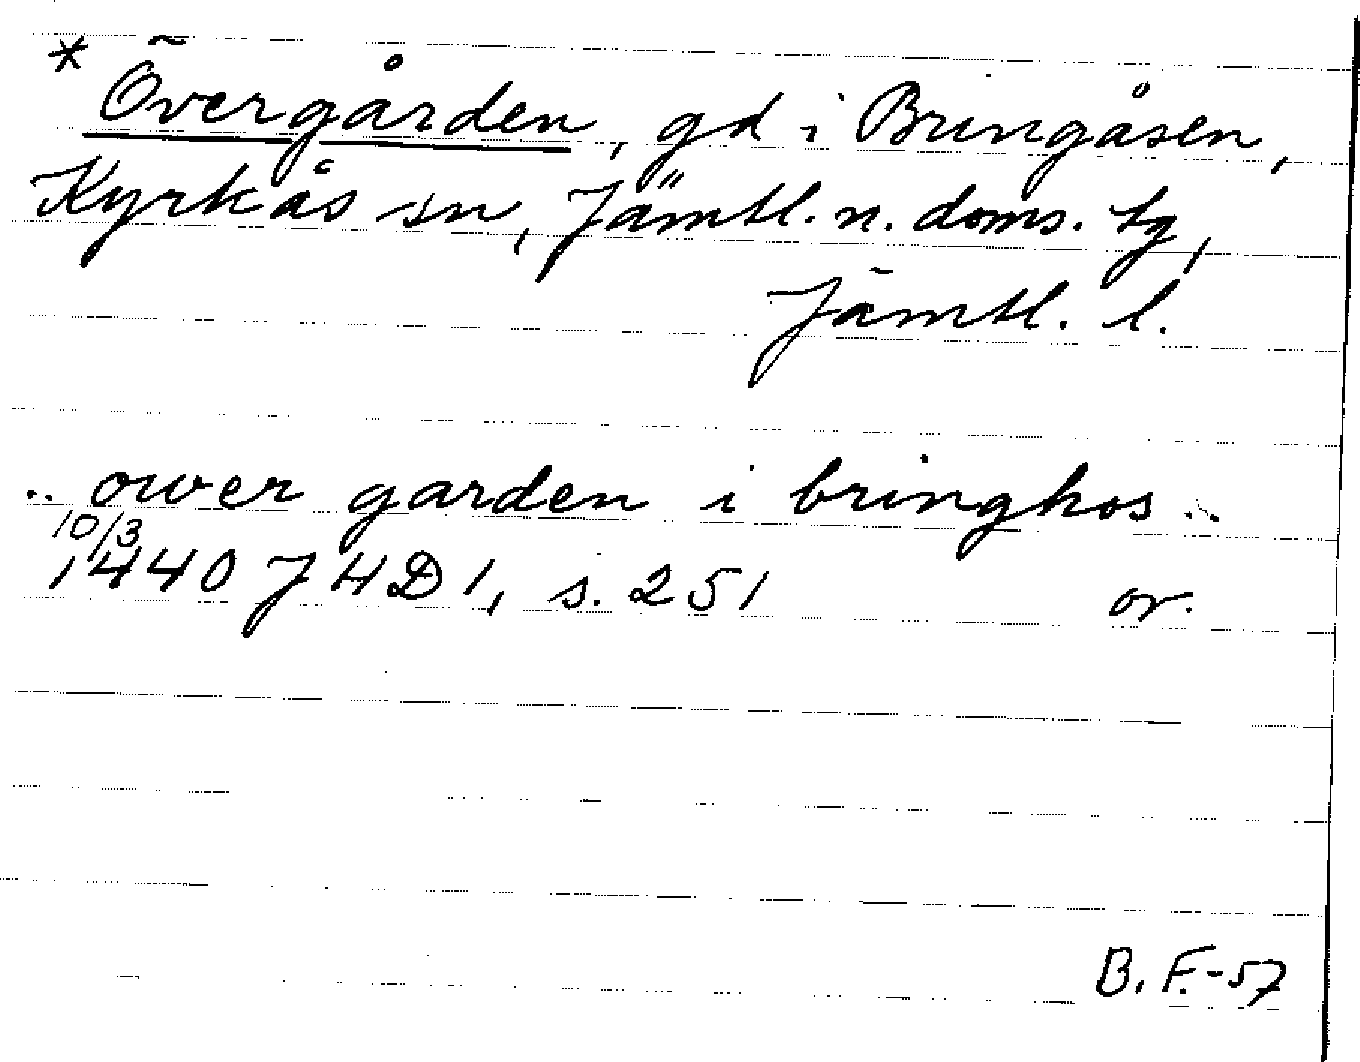 * Övergården, gd i Bringåsen,
Kyrkås sn, Jämtl. n. doms. tg,
Jämtl. l.
.. ower garden i bringhos ..
10/3
1440 JHD 1, s. 251 or.
B. F. -57